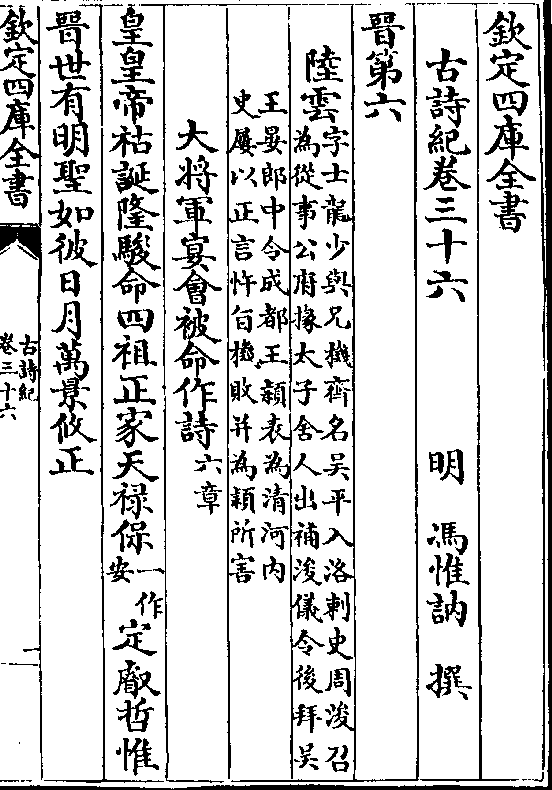 欽定四庫全書
古詩紀卷三十六　明　馮惟訥　撰
晉第六
陸雲字士龍少與兄機齊名吳平入洛刺史周浚召
為從事公府掾太子舍人出補浚儀令後拜吳
王晏郎中令成都王穎表為清河內
史屢以正言忤旨機敗并為穎所害
大將軍宴會被命作詩六章
皇皇帝祜誕隆駿命四祖正家天祿保一作安定厥哲惟
晉世有明聖如彼日月萬景攸正
欽定四庫全書
古詩紀
卷三十六
一